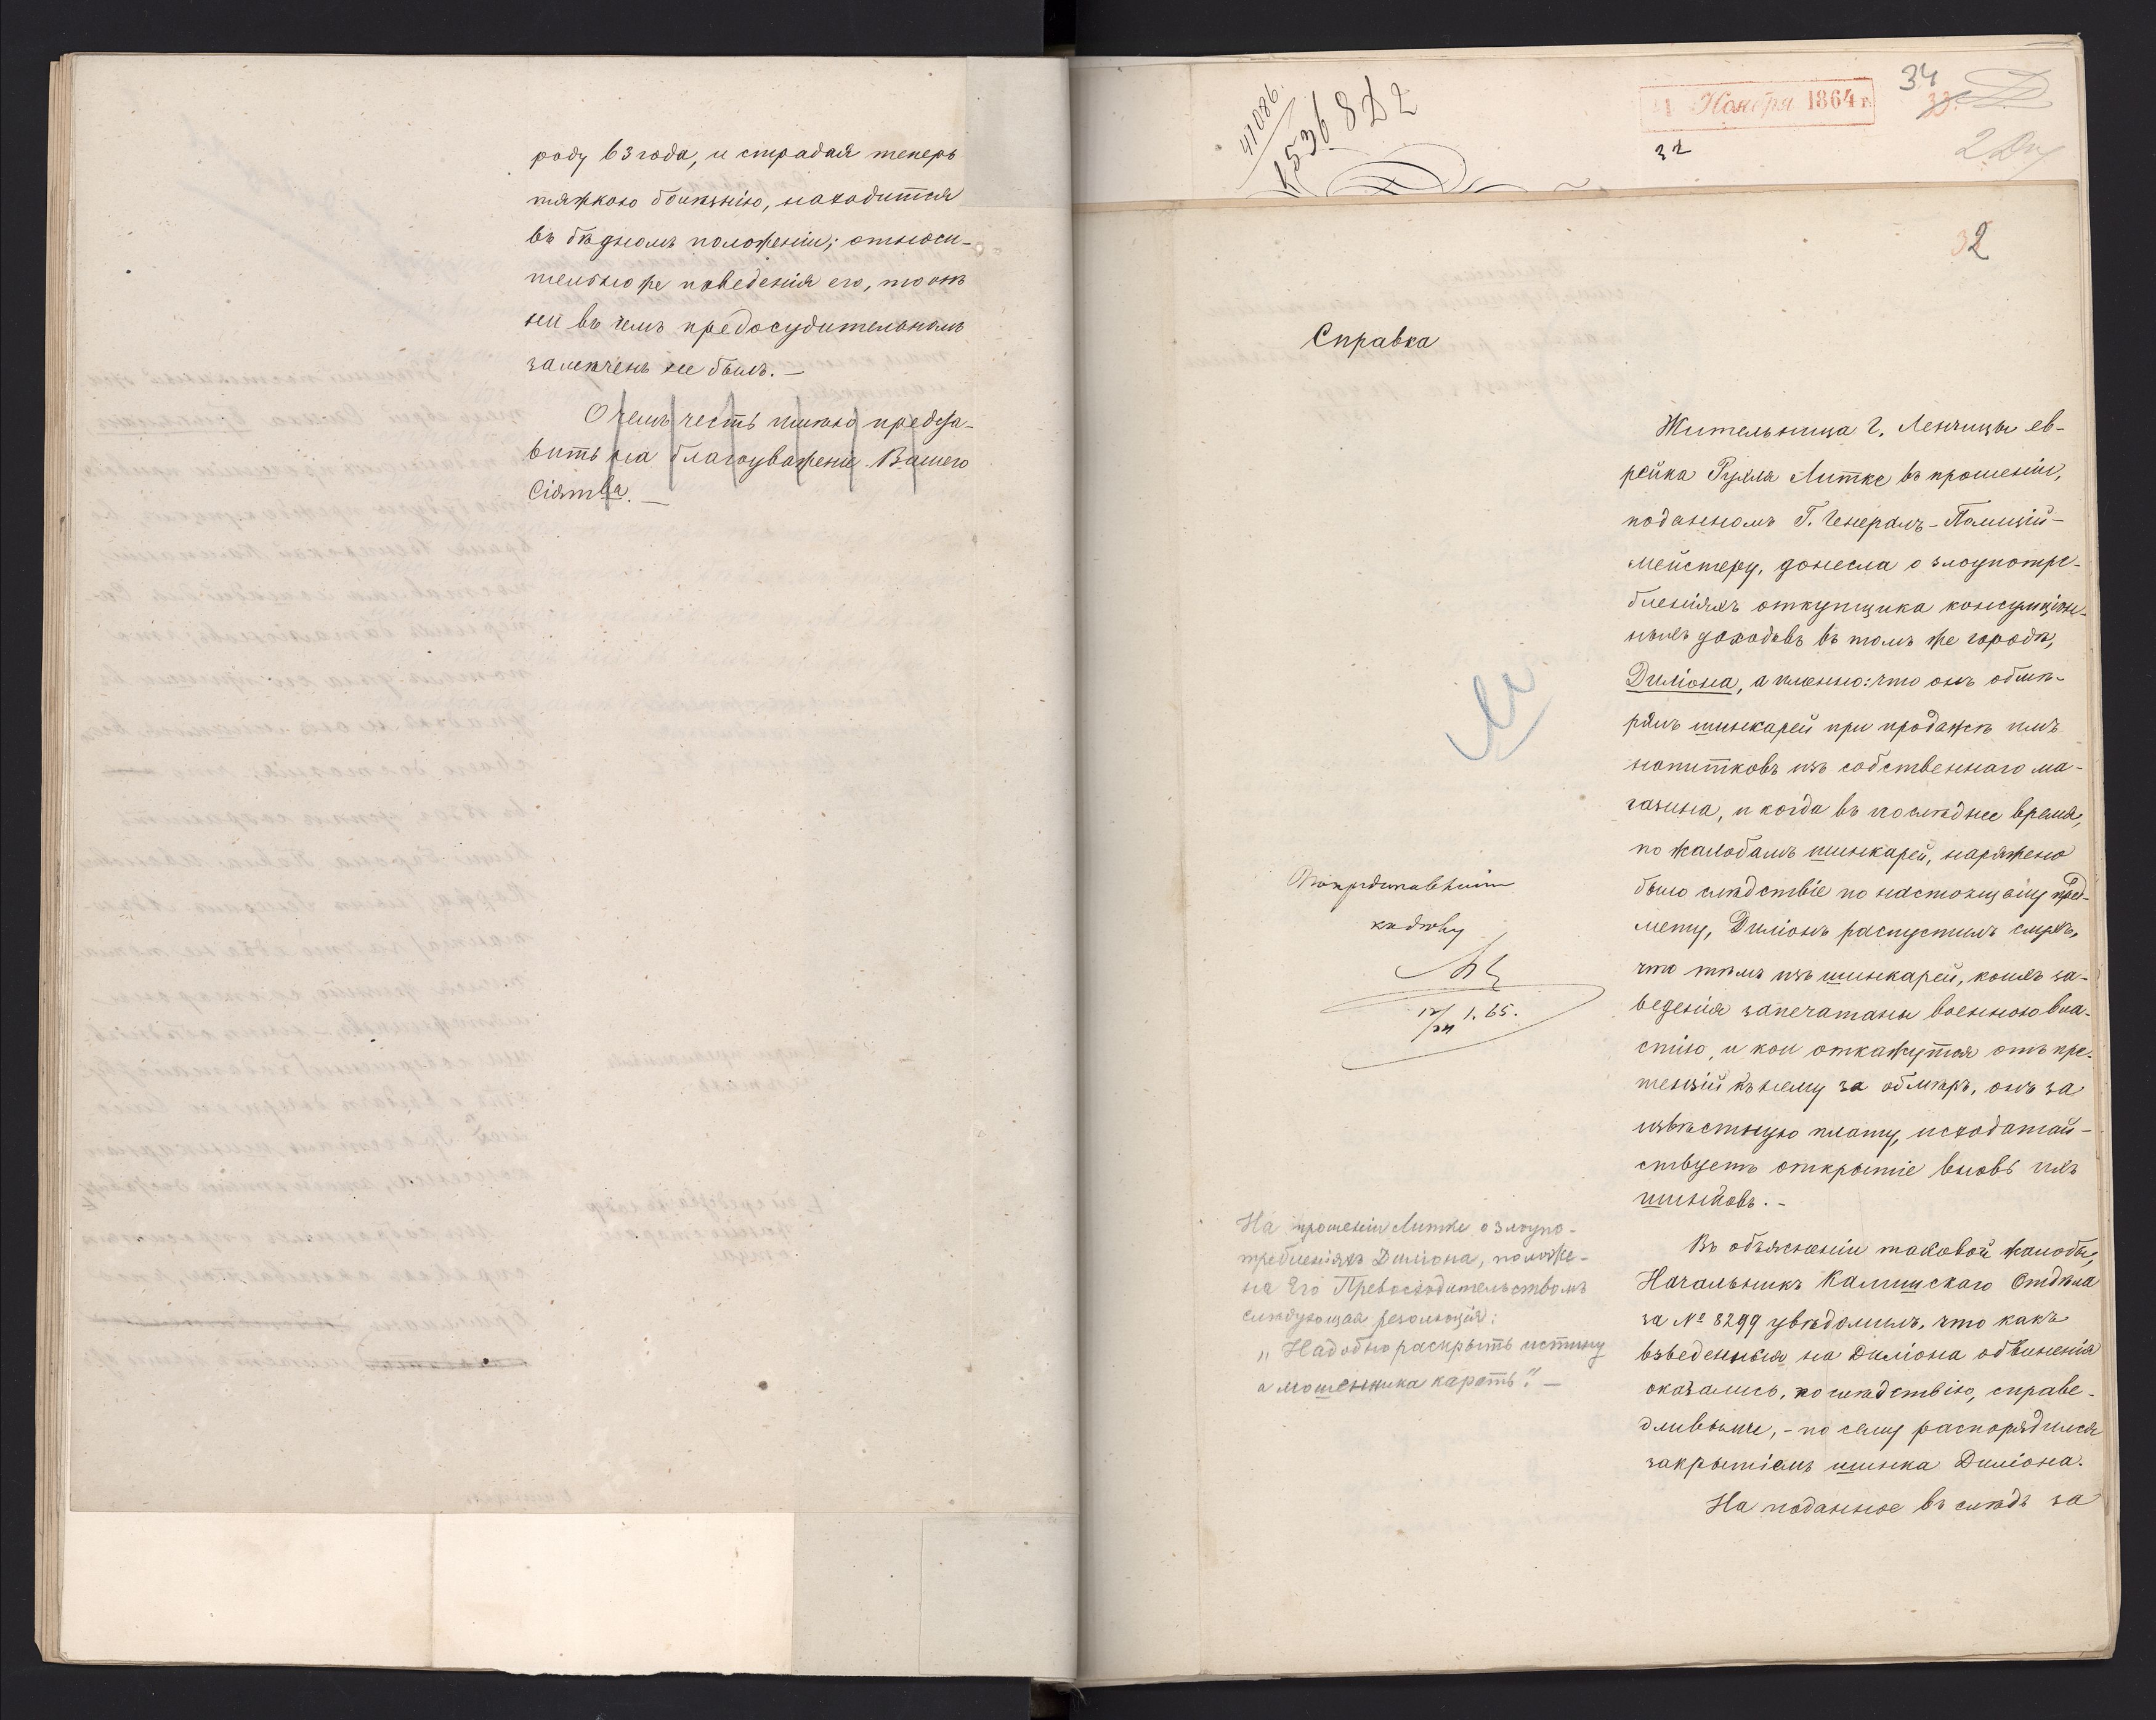 роду 63 года, и страдая теперь
тяжкою болѣзнію, находится
въ бѣдномъ положеніи; относи-
тельно же поведенія его, то онъ
ни въ чемъ предосудительномъ
замѣченъ не былъ. —
О чемъ честь имѣю предста-
вить на благоуваженіе Вашего
Сіятва. —
41086.
15368 Д2
Ноября 1864 г.
34
33.
32
32
Справка
Жительница г. Ленчицы ев-
рейка Рухля Литке въ прошеніи,
поданномъ Г. Генералъ-Полиціи-
мейстеру, донесла о злоупотре-
бленіяхъ откупщика консумціон-
ныхъ доходовъ въ томъ же городѣ,
Диліона, а именно: что онъ обмѣ-
рялъ шинкарей при продажѣ имъ
напитковъ изъ собственнаго ма-
газина, и когда въ послѣднее время,
по жалобамъ шинкарей, наряжено
было слѣдствіе по настоящему пред-
мету, Диліонъ распустилъ слухъ,
что тѣмъ изъ шинкарей, коихъ за-
веденія запечатаны военною вла-
стію, и кои откажутся отъ пре-
тензій къ нему за обмѣръ, онъ за
извѣстную плату, исходатай-
ствуетъ открытіе вновь ихъ
шинковъ. -
Въ объясненіи таковой жалобы,
Начальникъ Калишскаго Отдѣла
за № 8299 увѣдомилъ, что какъ
взведенныя на Диліона обвиненія
оказались, по слѣдствію, справе-
дливыми, - по сему распорядился
закрытіемъ шинка Диліона.
На поданное въ слѣдъ за
12/24 1. 65.
На прошеніи Литке о злоупо-
требленіяхъ Диліона, положе-
на Его Превосходительствомъ
слѣдующая резолюція:
„Надобно раскрыть истину
а мошенника карать." —